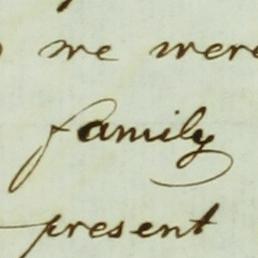 we were
family
present